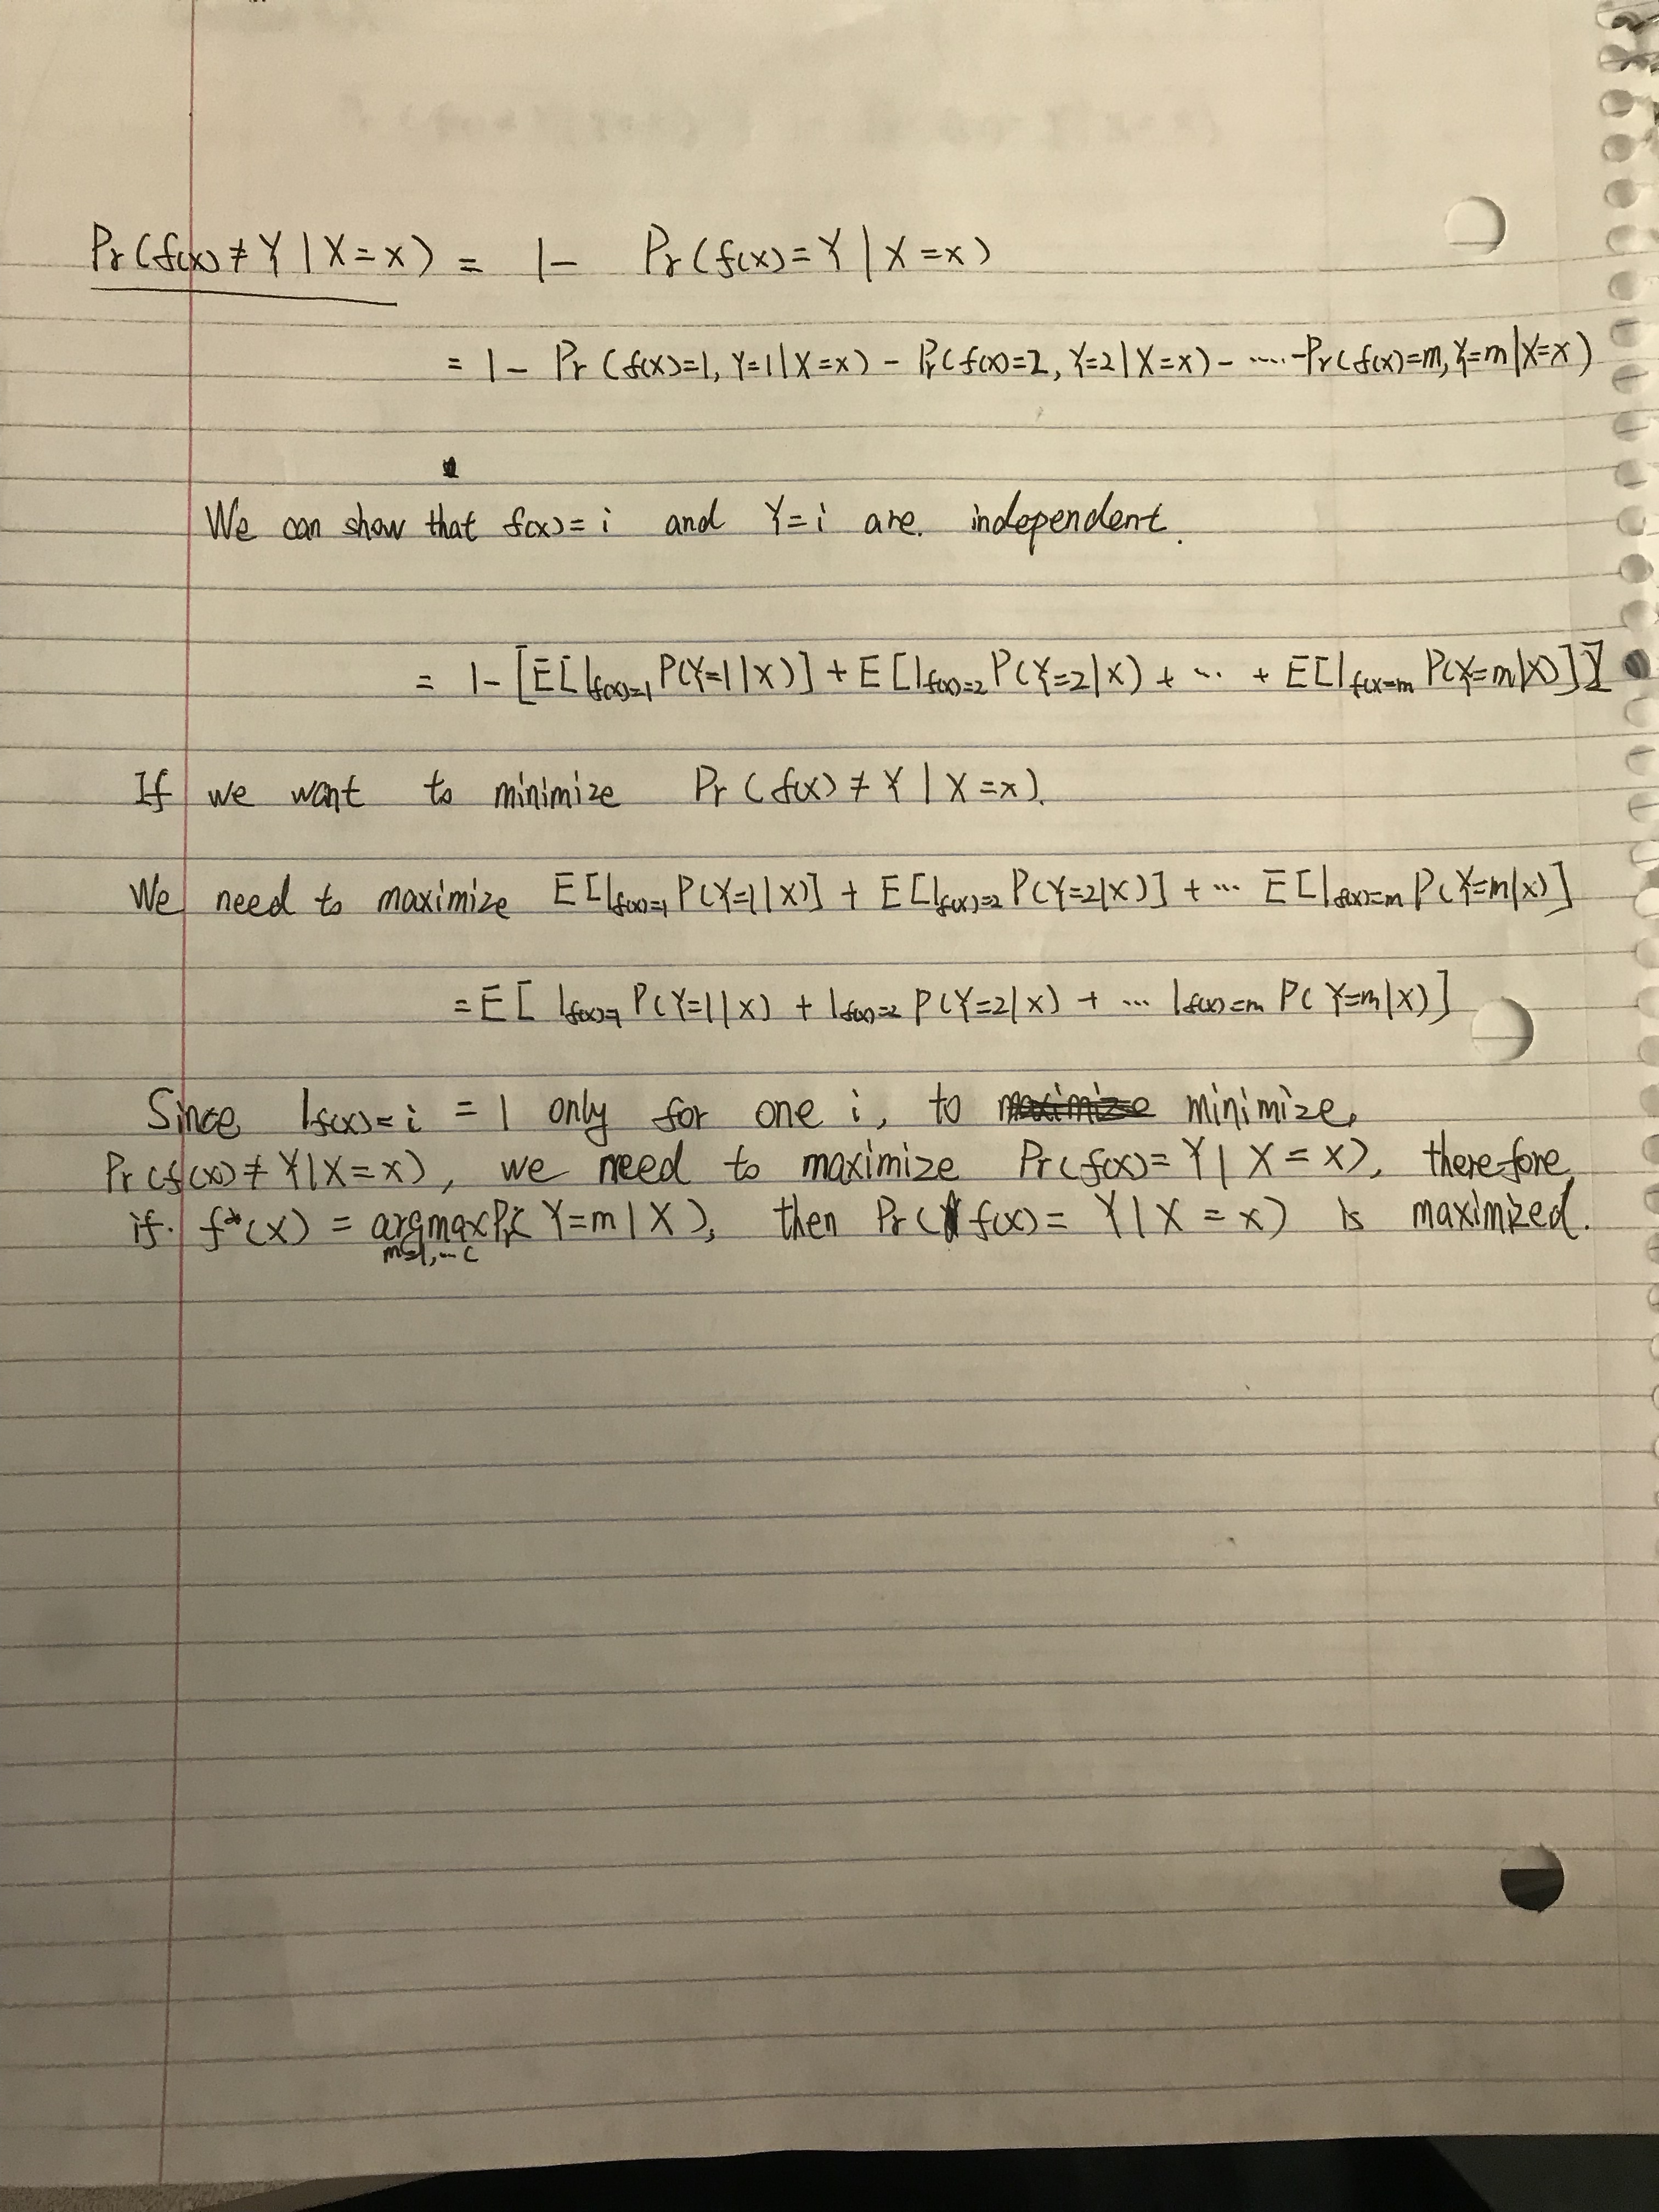 Pr(f(x) ≠ Y | X = x) = 1 - Pr(f(x) = Y | X = x)
= 1 - Pr(f(x)=1, Y=1 | X=x) - Pr(f(x)=2, Y=2 | X=x) - ..... - Pr(f(x)=m, Y=m | X=x)
We can show that f(x) = i and Y = i are independent.
= 1 - [E[1_{f(x)=1} P(Y=1|X)] + E[1_{f(x)=2} P(Y=2|X) + ... + E[1_{f(x=m} P(Y=m|X)]]
If we want to minimize Pr(f(x) ≠ Y | X = x).
We need to maximize E[1_{f(x)=1} P(Y=1|X)] + E[1_{f(x)=2} P(Y=2|X)] + ... E[1_{f(x)=m} P(Y=m|X)]
= E[ 1_{f(x)=1} P(Y=1|X) + 1_{f(x)=2} P(Y=2|X) + ... 1_{f(x)=m} P(Y=m|X)]
Since 1_{f(x)=i} = 1 only for one i, to minimize
Pr(f(x) ≠ Y | X = x), we need to maximize Pr(f(x) = Y | X = x), therefore
if f*(x) = argmax_{m=1,...C} Pr(Y=m | X), then Pr(f(x) = Y | X = x) is maximized.